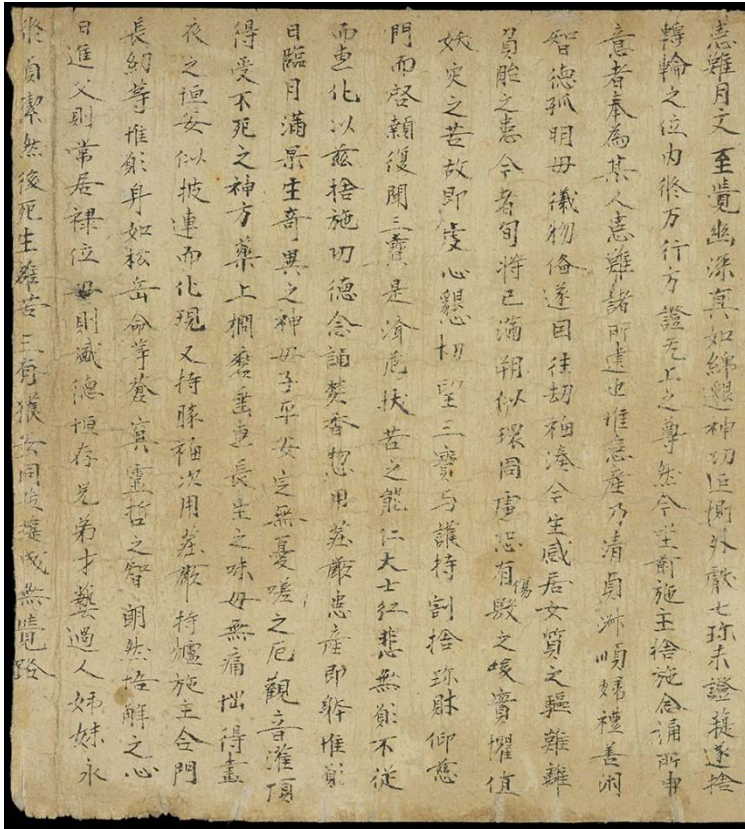 患難月文 至覺幽深真如綿邈神功叵惻外獻七珎未證菩提遂捨
轉輪之位內修万行方證无上之尊然今坐前施主捨施念誦所申
意者奉為某人患難諸所建也惟患產乃清貞淋順婦禮善閑
智德孤明母儀物備遂因往劫福湊今生感居女質之軀難離
負胎之患今者旬將已滿朔似環周慮恐有傷毀之唆實懼值
妖灾之苦故即虔心懇切望三寶与護持割捨珎財仰慈
門而啓顙復聞三寶是濟危拔苦之能仁大士紅悲無願不從
而惠化以茲捨施功德念誦焚香惣用莊嚴患產即躰惟願
日臨月滿果生奇異之神母子平安定無憂嗟之厄觀音灌頂
得受不死之神方藥上捫磨垂惠長生之味母無痛惱得晝
夜之恒安似披蓮而化現又持勝福次用莊嚴持爐施主合門
長幼等惟願身如松岳命等蒼冥靈哲之智朗然悟解之心
日進父則常居祿位母則盛德恒存兄弟才藝過人姊妹永
修貞潔然後死生離苦三有獲安同發成無覺路